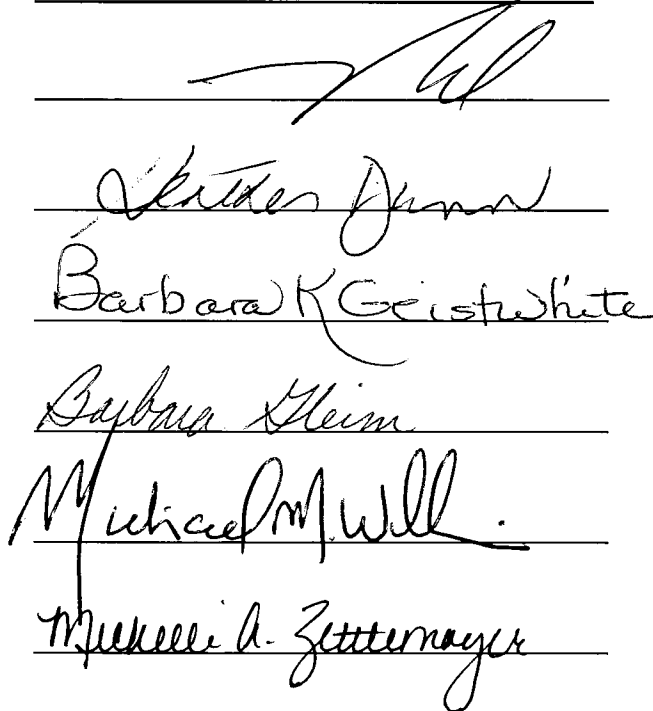 Heather Dunn
Barbara K Geistwhite
Barbara Gleim
Michael M. Will
Michelle A. Zettlemoyer